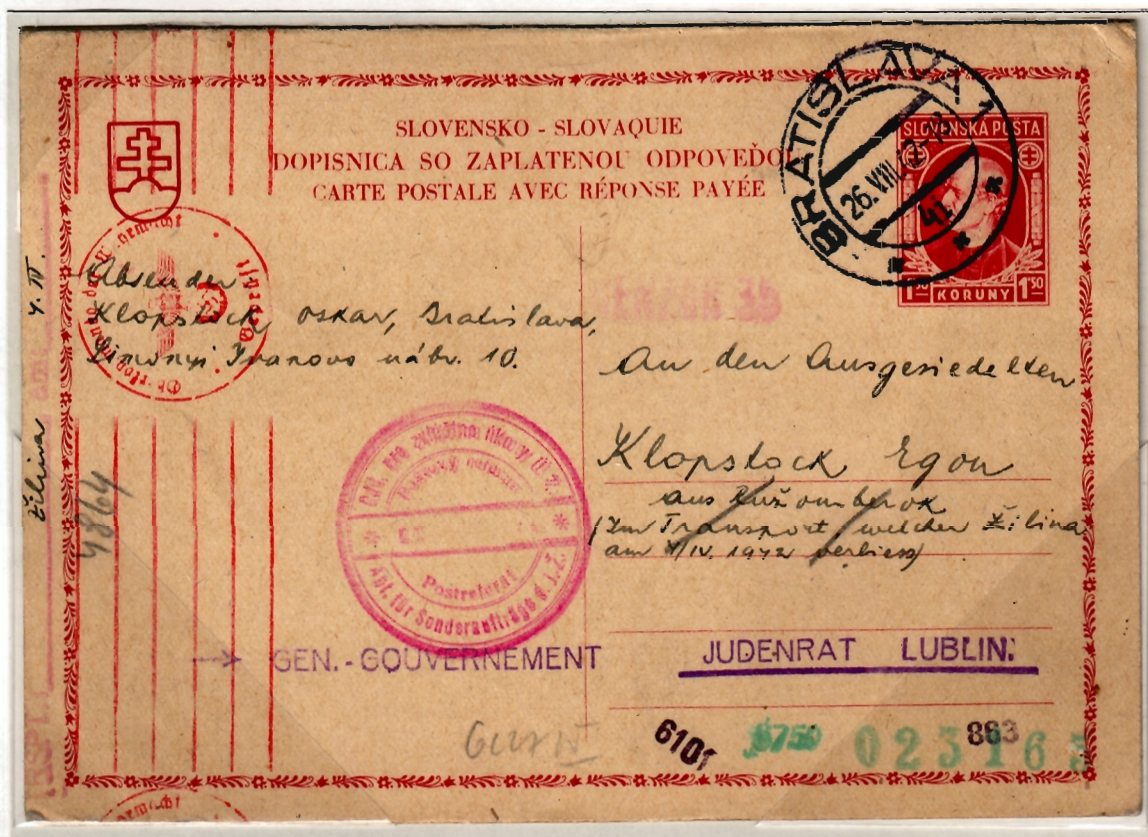 SLOVENSKO - SLOVAQUIE
DOPISNICA SO ZAPLATENOU ODPOVEĎOU
CARTE POSTALE AVEC RÉPONSE PAYÉE
BRATISLAVA 1
26.VIII.
4i
SLOVENSKÁ POŠTA
1 50 KORUNY 1 50
Absender
Klopstock Oskar, Bratislava,
Simonyi Ivanovo nábr. 10.
An den Ausgesiedelten
Klopstock Egon
aus Ružomberok
(Im Transport welcher Žilina
am 4/IV. 1942 verliess)
Žilina 4. IV.
4864
Odd. pre zvláštne úkony Ú. Ž.
Postreferat
Abt. für Sonderaufträge d. J.Z.
GEN. - GOUVERNEMENT
JUDENRAT LUBLIN.
6101 6750 023163 863